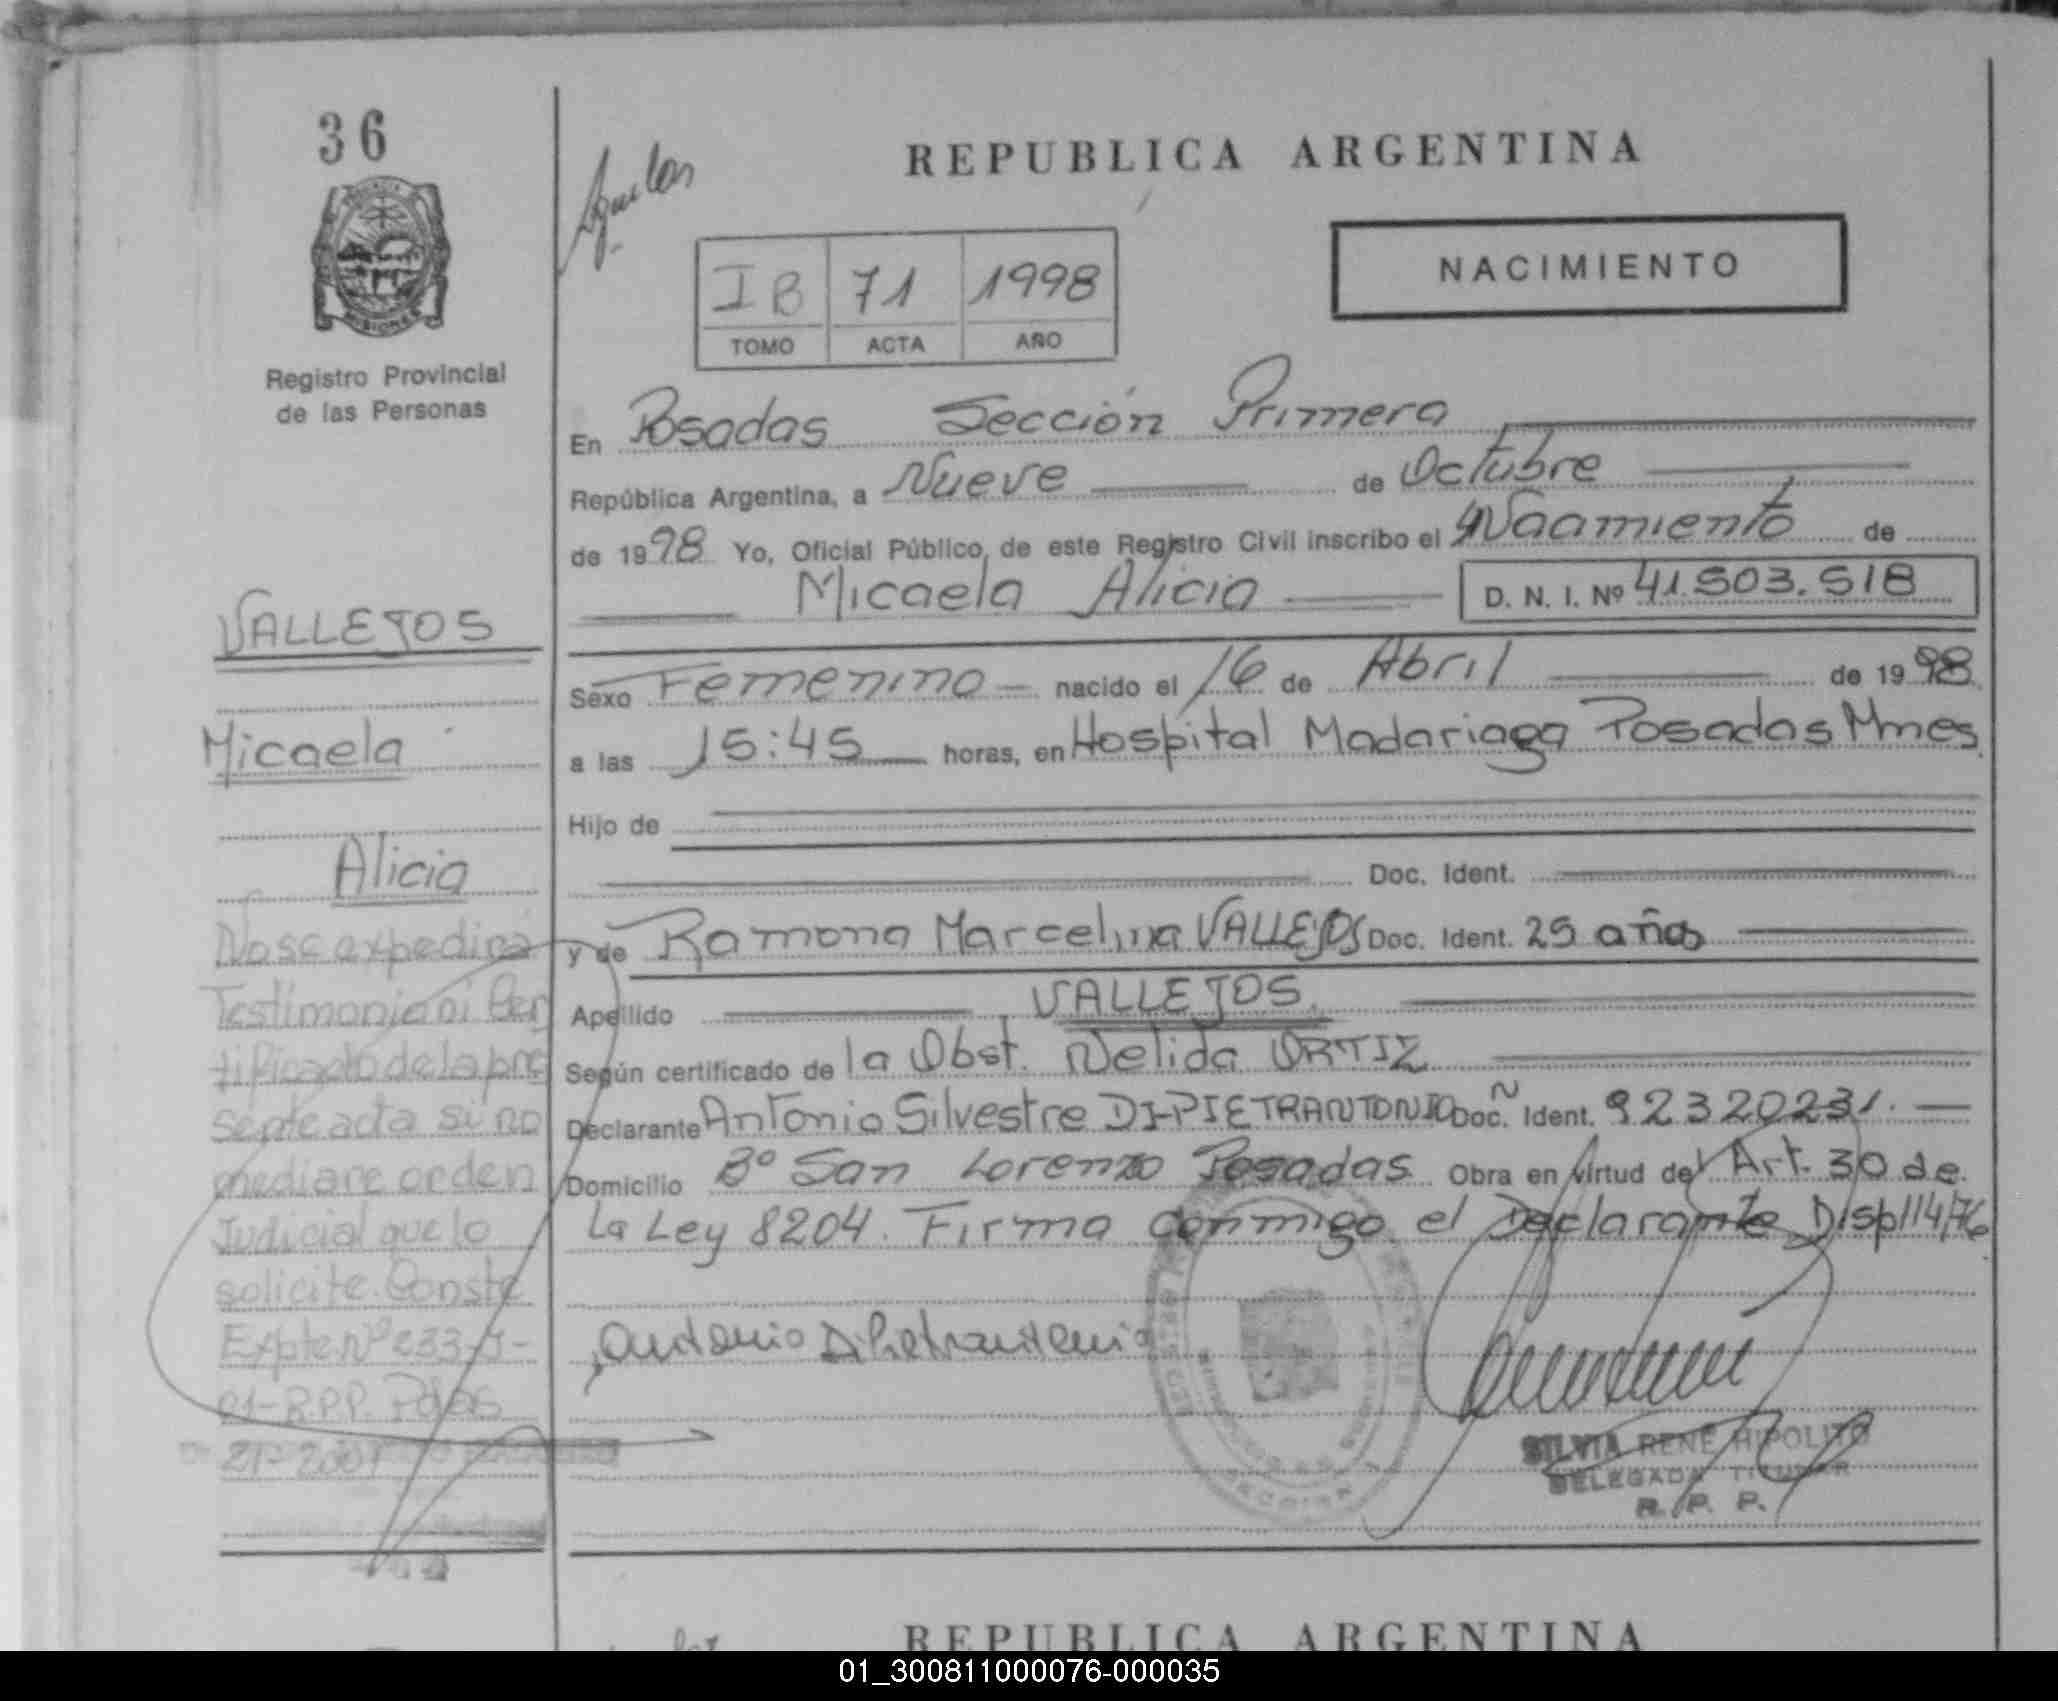 36
Registro Provincial
de las Personas
VALLEJOS
Micaela
Alicia
No se expedirá
Testimonio ni Cer
tificado de la pre
sente acta si no
mediare orden
Judicial que lo
solicite. Conste
Expte Nº 233-
01-R.P.P. Pdas
2001
REPUBLICA ARGENTINA
NACIMIENTO
I B 71 1998
TOMO ACTA AÑO
En Posadas Sección Primera
República Argentina, a Nueve de Octubre
de 1998 Yo, Oficial Público, de este Registro Civil inscribo el Nacimiento de
Micaela Alicia D. N. I. Nº 41.503.518
Sexo Femenino nacido el 16 de Abril de 1998
a las 15:45 horas, en Hospital Madariaga Posadas Mnes
Hijo de
Doc. Ident.
y de Ramona Marcelina VALLEJOS Doc. Ident. 25 años
Apellido VALLEJOS.
Según certificado de la Obst. Nelida ORTIZ
Declarante Antonio Silvestre DI-PIETRANTONIO Doc. Ident. 92320231.
Domicilio Bº San Lorenzo Posadas Obra en virtud del Art. 30 de
La Ley 8204. Firma conmigo el Declarante Disp 114/76
Antonio Di Pietrantonio
SILVIA RENE HIPOLITO
DELEGADA TITULAR
R. P. P.
REPUBLICA ARGENTINA
01_300811000076-000035